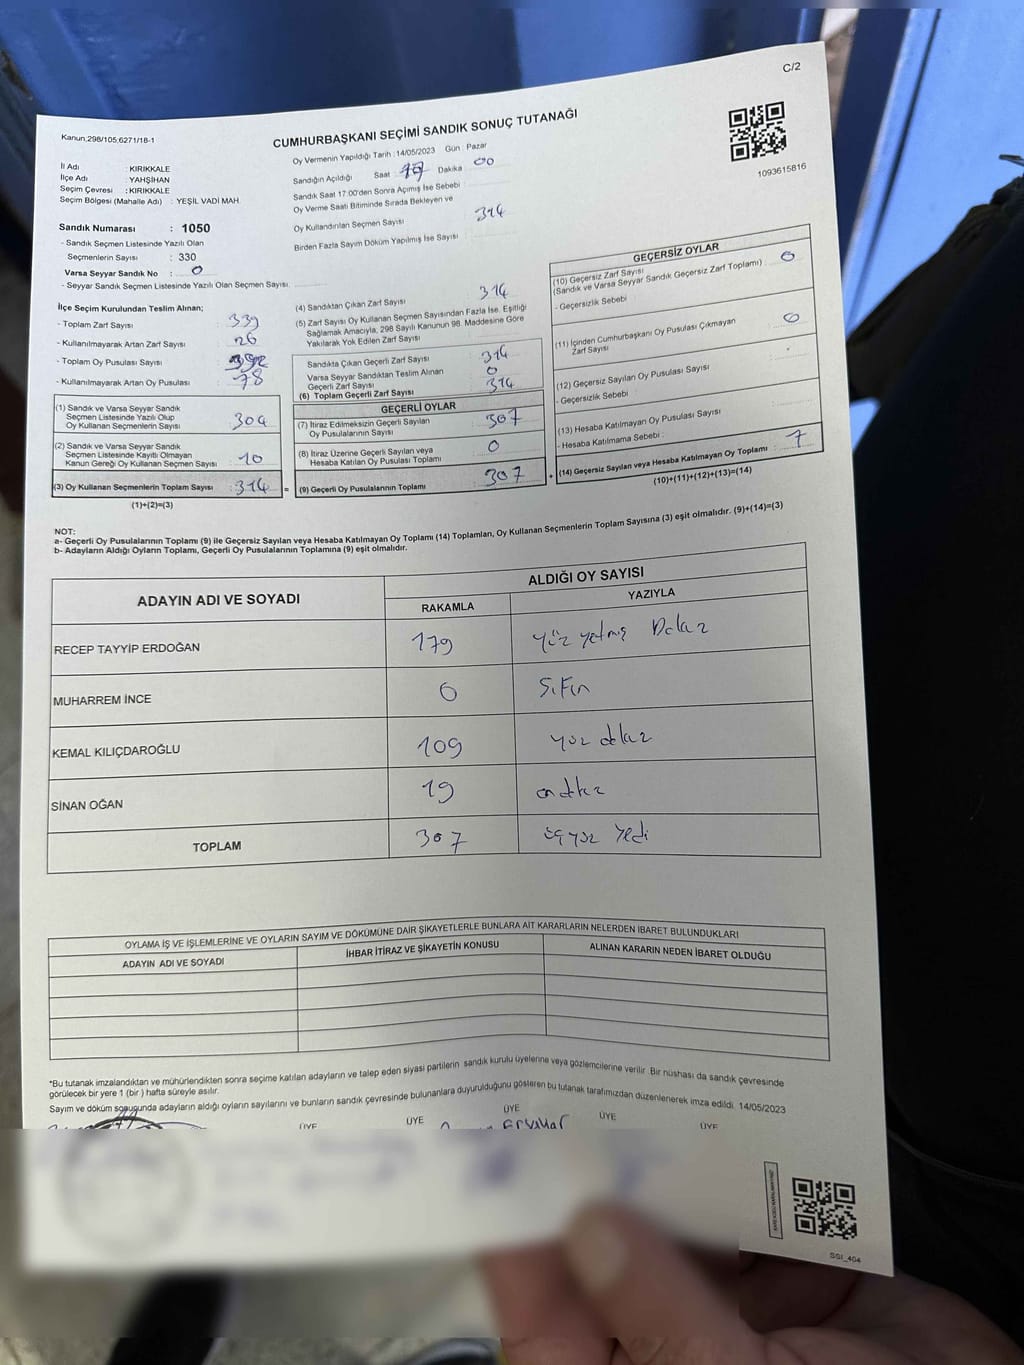 C/2
Kanun:298/105;6271/18-1
CUMHURBAŞKANI SEÇİMİ SANDIK SONUÇ TUTANAĞI
1093615816
İl Adı : KIRIKKALE
İlçe Adı : YAHŞİHAN
Seçim Çevresi : KIRIKKALE
Seçim Bölgesi (Mahalle Adı) : YEŞİL VADİ MAH.
Oy Vermenin Yapıldığı Tarih : 14/05/2023 Gün : Pazar
Sandığın Açıldığı Saat : 17 Dakika : 00
Sandık Saat 17:00'den Sonra Açımış İse Sebebi :
Oy Verme Saati Bitiminde Sırada Bekleyen ve
Oy Kullandırılan Seçmen Sayısı : 314
Birden Fazla Sayım Döküm Yapılmış İse Sayısı :
Sandık Numarası : 1050
- Sandık Seçmen Listesinde Yazılı Olan
Seçmenlerin Sayısı : 330
Varsa Seyyar Sandık No : 0
- Seyyar Sandık Seçmen Listesinde Yazılı Olan Seçmen Sayısı:
İlçe Seçim Kurulundan Teslim Alınan;
- Toplam Zarf Sayısı : 339
- Kullanılmayarak Artan Zarf Sayısı : 26
- Toplam Oy Pusulası Sayısı : 392
- Kullanılmayarak Artan Oy Pusulası : 78
(1) Sandık ve Varsa Seyyar Sandık
Seçmen Listesinde Yazılı Olup
Oy Kullanan Seçmenlerin Sayısı : 304
(2) Sandık ve Varsa Seyyar Sandık
Seçmen Listesinde Kayıtlı Olmayan
Kanun Gereği Oy Kullanan Seçmen Sayısı : 10
(3) Oy Kullanan Seçmenlerin Toplam Sayısı : 314 =
(1)+(2)=(3)
(4) Sandıktan Çıkan Zarf Sayısı : 314
(5) Zarf Sayısı Oy Kullanan Seçmen Sayısından Fazla İse, Eşitliği
Sağlamak Amacıyla, 298 Sayılı Kanunun 98. Maddesine Göre
Yakılarak Yok Edilen Zarf Sayısı :
Sandıkta Çıkan Geçerli Zarf Sayısı : 314
Varsa Seyyar Sandıktan Teslim Alınan
Geçerli Zarf Sayısı : 0
(6) Toplam Geçerli Zarf Sayısı : 314
GEÇERLİ OYLAR
(7) İtiraz Edilmeksizin Geçerli Sayılan
Oy Pusulalarının Sayısı : 307
(8) İtiraz Üzerine Geçerli Sayılan veya
Hesaba Katılan Oy Pusulası Toplamı : 0
(9) Geçerli Oy Pusulalarının Toplamı : 307 +
GEÇERSİZ OYLAR
(10) Geçersiz Zarf Sayısı
(Sandık ve Varsa Seyyar Sandık Geçersiz Zarf Toplamı) : 0
- Geçersizlik Sebebi :
(11) İçinden Cumhurbaşkanı Oy Pusulası Çıkmayan
Zarf Sayısı : 0
(12) Geçersiz Sayılan Oy Pusulası Sayısı :
- Geçersizlik Sebebi :
(13) Hesaba Katılmayan Oy Pusulası Sayısı :
- Hesaba Katılmama Sebebi :
(14) Geçersiz Sayılan veya Hesaba Katılmayan Oy Toplamı : 7
(10)+(11)+(12)+(13)=(14)
NOT:
a- Geçerli Oy Pusulalarının Toplamı (9) ile Geçersiz Sayılan veya Hesaba Katılmayan Oy Toplamı (14) Toplamları, Oy Kullanan Seçmenlerin Toplam Sayısına (3) eşit olmalıdır. (9)+(14)=(3)
b- Adayların Aldığı Oyların Toplamı, Geçerli Oy Pusulalarının Toplamına (9) eşit olmalıdır.
ADAYIN ADI VE SOYADI
ALDIĞI OY SAYISI
RAKAMLA YAZIYLA
RECEP TAYYİP ERDOĞAN 179 yüz yetmiş Dokuz
MUHARREM İNCE 0 Sıfır
KEMAL KILIÇDAROĞLU 109 yüz dokuz
SİNAN OĞAN 19 ondokuz
TOPLAM 307 üçyüz yedi
OYLAMA İŞ VE İŞLEMLERİNE VE OYLARIN SAYIM VE DÖKÜMÜNE DAİR ŞİKAYETLERLE BUNLARA AİT KARARLARIN NELERDEN İBARET BULUNDUKLARI
ADAYIN ADI VE SOYADI İHBAR İTİRAZ VE ŞİKAYETİN KONUSU ALINAN KARARIN NEDEN İBARET OLDUĞU
*Bu tutanak imzalandıktan ve mühürlendikten sonra seçime katılan adayların ve talep eden siyasi partilerin sandık kurulu üyelerine veya gözlemcilerine verilir. Bir nüshası da sandık çevresinde
görülecek bir yere 1 (bir) hafta süreyle asılır.
Sayım ve döküm sonucunda adayların aldığı oyların sayılarını ve bunların sandık çevresinde bulunanlara duyurulduğunu gösteren bu tutanak tarafımızdan düzenlenerek imza edildi. 14/05/2023
ÜYE ÜYE ÜYE ÜYE ÜYE
SGI_404